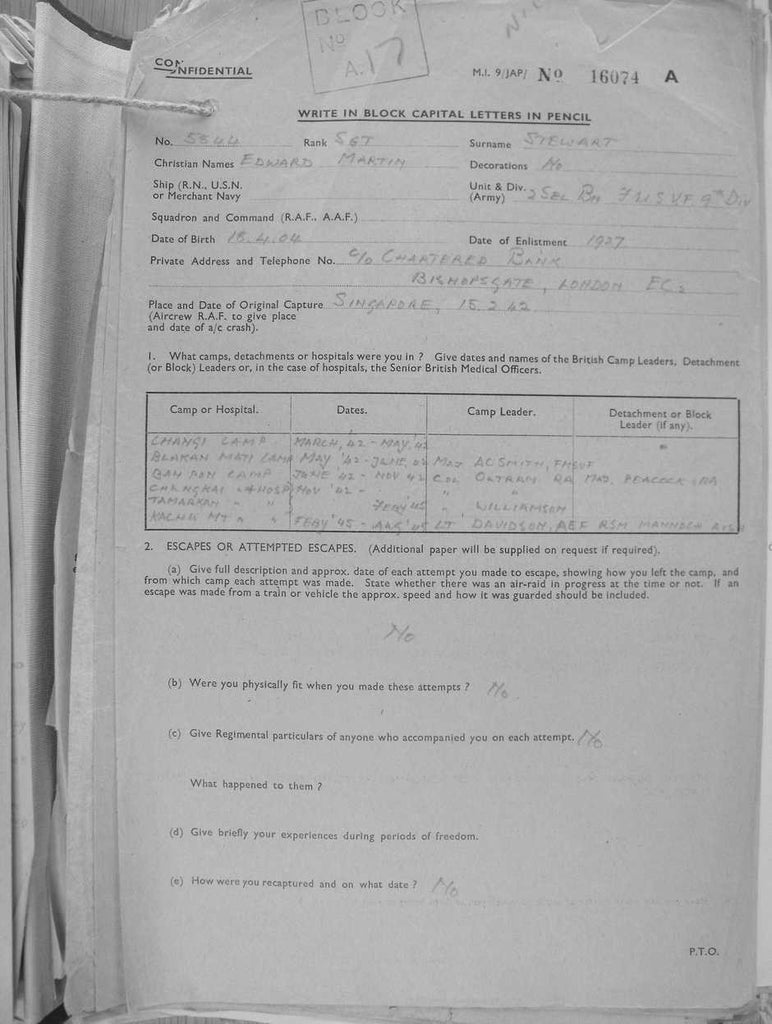 BLOCK
No
A.17
CONFIDENTIAL
M.I. 9/JAP/ No 16074 A
WRITE IN BLOCK CAPITAL LETTERS IN PENCIL
No. 5344 Rank SGT Surname STEWART
Christian Names EDWARD MARTIN Decorations No
Ship (R.N., U.S.N. or Merchant Navy
Unit & Div. (Army) 2 SEL BN F.M.S.V.F. 9th DIV
Squadron and Command (R.A.F., A.A.F.)
Date of Birth 15.4.04 Date of Enlistment 1927
Private Address and Telephone No. c/o CHARTERED BANK
BISHOPSGATE, LONDON EC2
Place and Date of Original Capture SINGAPORE, 15.2.42
(Aircrew R.A.F. to give place
and date of a/c crash).
1. What camps, detachments or hospitals were you in ? Give dates and names of the British Camp Leaders, Detachment
(or Block) Leaders or, in the case of hospitals, the Senior British Medical Officers.
Camp or Hospital. Dates. Camp Leader. Detachment or Block Leader (if any).
CHANGI CAMP MARCH, 42 - MAY, 42
BLAKAN MATI CAMP MAY '42 - JUNE, 42 MAJ AC SMITH, FMSVF
BAN PON CAMP JUNE '42 - NOV 42 COL OUTRAM RA MAJ. PEACOCK RA
CHUNGKAI " & HOSP NOV '42 - " "
TAMARKAN " " FEBY '45 " WILLIAMSON
KACHU MT " " FEBY '45 - AUG '45 LT DAVIDSON, AEF RSM
2. ESCAPES OR ATTEMPTED ESCAPES. (Additional paper will be supplied on request if required).
(a) Give full description and approx. date of each attempt you made to escape, showing how you left the camp, and
from which camp each attempt was made. State whether there was an air-raid in progress at the time or not. If an
escape was made from a train or vehicle the approx. speed and how it was guarded should be included.
No
(b) Were you physically fit when you made these attempts ? No
(c) Give Regimental particulars of anyone who accompanied you on each attempt. No
What happened to them ?
(d) Give briefly your experiences during periods of freedom.
(e) How were you recaptured and on what date ? No
P.T.O.